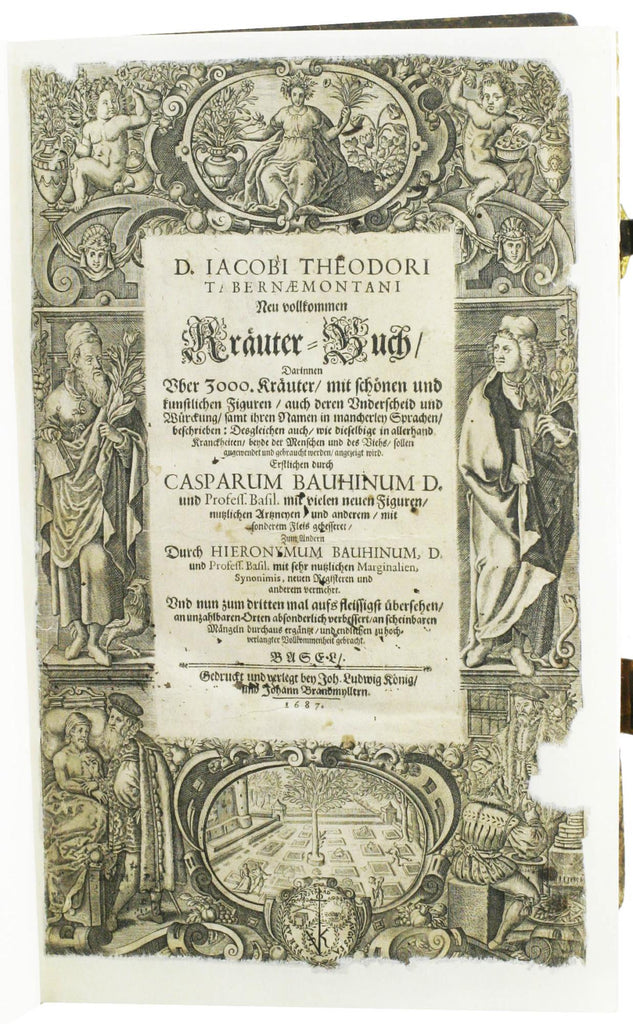 D. IACOBI THEODORI
TABERNÆMONTANI
Neu vollkommen
Kräuter-Buch/
Darinnen
Vber 3000. Kräuter/ mit schönen und
kunstlichen Figuren / auch deren Vnderscheid und
Würckung/ samt ihren Namen in mancherley Sprachen/
beschrieben : Desgleichen auch/ wie dieselbige in allerhand
Kranckheiten/ beyde der Menschen und des Viehs/ sollen
angewendet und gebraucht werden/ angezeigt wird.
Erstlichen durch
CASPARUM BAUHINUM D.
und Profess. Basil. mit vielen neuen Figuren/
nutzlichen Artzneyen / und anderem / mit
sonderem Fleis gebesseret/
Zum Andern
Durch HIERONYMUM BAUHINUM, D.
und Profess. Basil. mit sehr nutzlichen Marginalien,
Synonimis, neuen Registeren und
anderem vermehrt.
Und nun zum dritten mal aufs fleissigst übersehen/
an unzahlbaren Orten absonderlich verbessert/ an scheinbaren
Mängeln durchaus ergäntzt / und endlichen zu hoch-
verlangter Vollkommenheit gebracht.
BASEL/
Gedruckt und verlegt bey Joh. Ludwig König/
und Johann Brandmyllern.
1687.